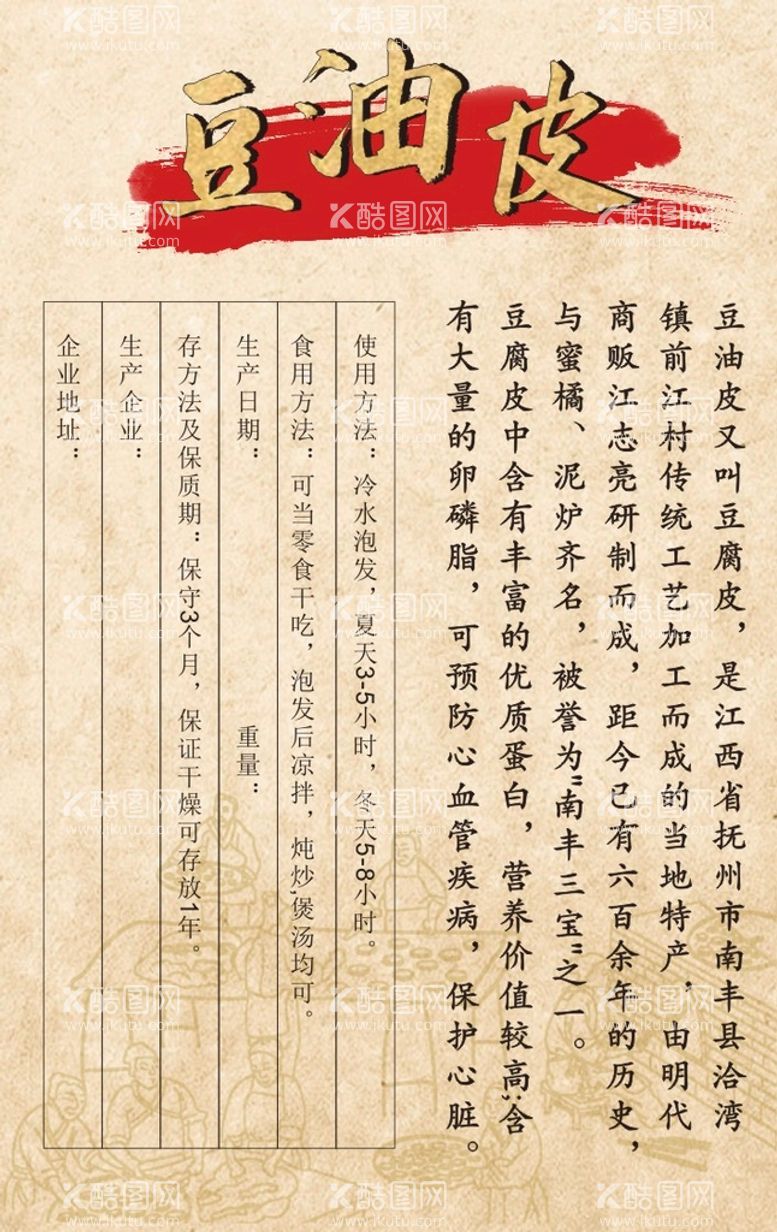 豆油皮
豆油皮又叫豆腐皮，是江西省抚州市南丰县洽湾
镇前江村传统工艺加工而成的当地特产，由明代
商贩江志亮研制而成，距今已有六百余年的历史，
与蜜橘、泥炉齐名，被誉为"南丰三宝"之一。
豆腐皮中含有丰富的优质蛋白，营养价值较高;含
有大量的卵磷脂，可预防心血管疾病，保护心脏。
使用方法：冷水泡发，夏天3-5小时，冬天5-8小时。
食用方法：可当零食干吃，泡发后凉拌，炖炒,煲汤均可。
生产日期： 重量：
存方法及保质期：保守3个月，保证干燥可存放1年。
生产企业：
企业地址：
酷图网
www.ikutu.com